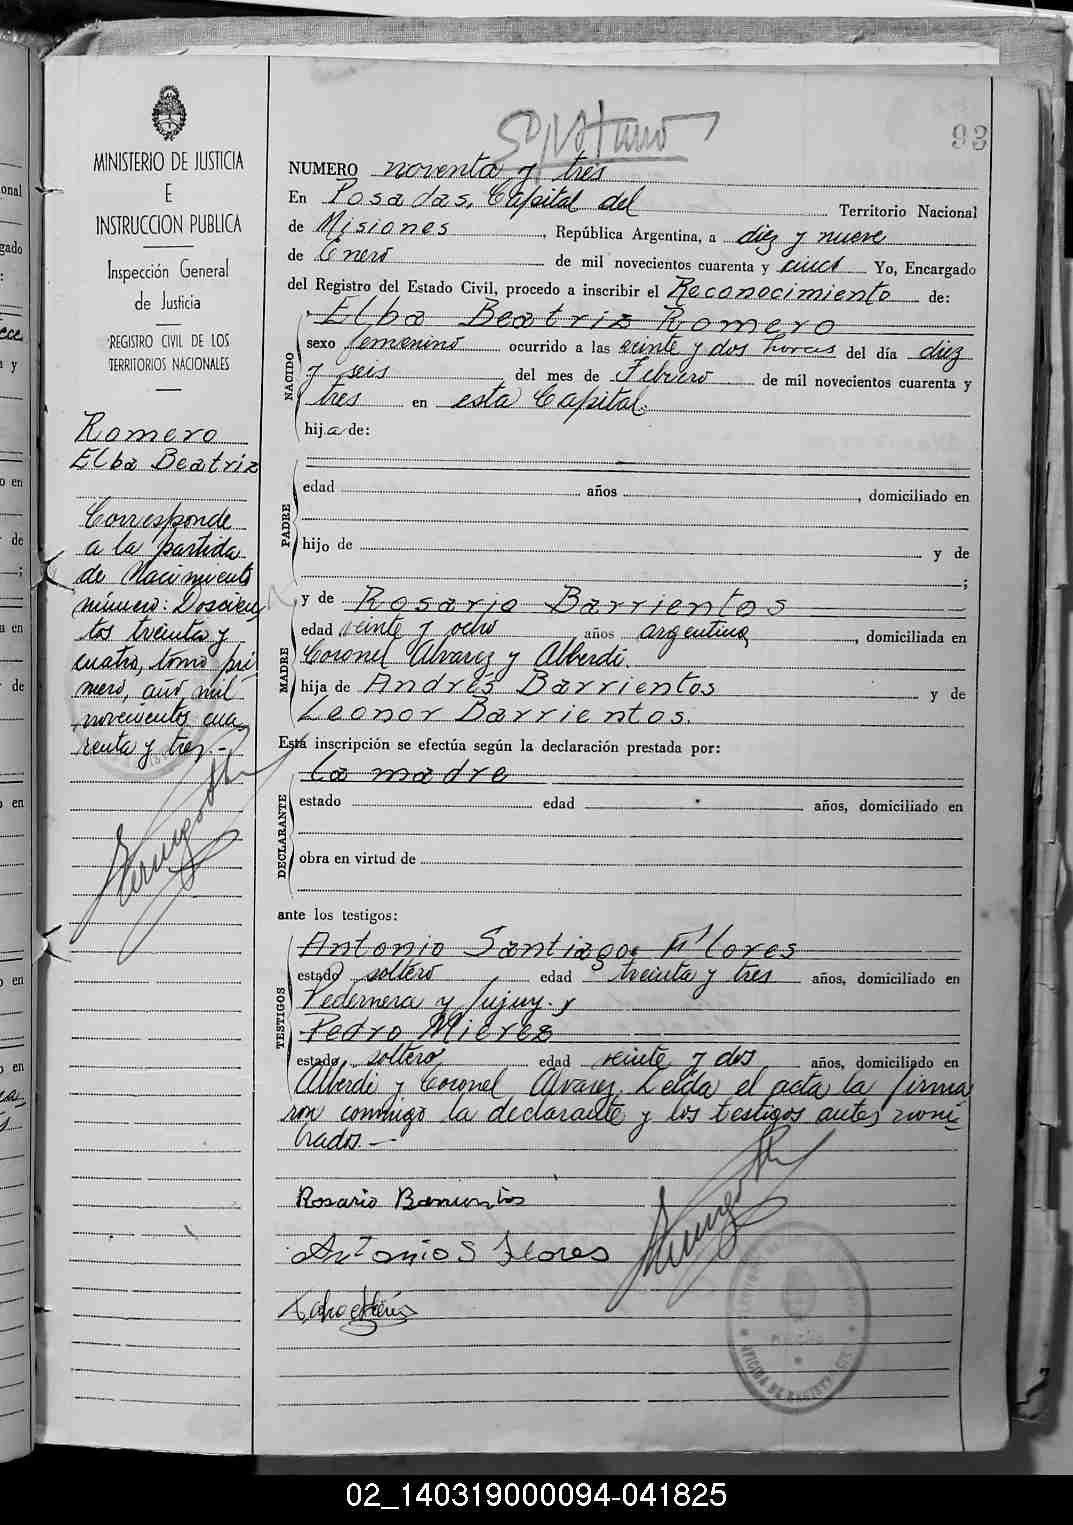 93
MINISTERIO DE JUSTICIA
E
INSTRUCCION PUBLICA
Inspección General
de Justicia
REGISTRO CIVIL DE LOS
TERRITORIOS NACIONALES
Romero
Elba Beatriz
Corresponde
a la partida
de Nacimiento
número: Doscien
tos treinta y
cuatro, tomo pri
mero, año mil
novecientos cua
renta y tres.-
NUMERO noventa y tres
En Posadas, Capital del Territorio Nacional
de Misiones, República Argentina, a diez y nueve
de Enero de mil novecientos cuarenta y cinco Yo, Encargado
del Registro del Estado Civil, procedo a inscribir el Reconocimiento de:
Elba Beatriz Romero
sexo femenino ocurrido a las veinte y dos horas del día diez
y seis del mes de Febrero de mil novecientos cuarenta y
tres en esta Capital.
NACIDO
hija de:
edad años , domiciliado en
PADRE
hijo de y de
;
y de Rosario Barrientos
edad veinte y ocho años argentina, domiciliada en
Coronel Alvarez y Alberdi.
MADRE
hija de Andrés Barrientos y de
Leonor Barrientos.
Esta inscripción se efectúa según la declaración prestada por:
la madre
estado edad años, domiciliado en
DECLARANTE
obra en virtud de
ante los testigos:
Antonio Santiago Flores
estado soltero edad treinta y tres años, domiciliado en
Pedernera y Jujuy. y
TESTIGOS
Pedro Mierez
estado soltero edad veinte y dos años, domiciliado en
Alberdi y Coronel Alvarez. Leída el acta la firma
ron conmigo la declarante y los testigos antes nom
brados.-
Rosario Barrientos
Antonio S Flores
OFICINA DE REGISTRO CIVIL
02_140319000094-041825